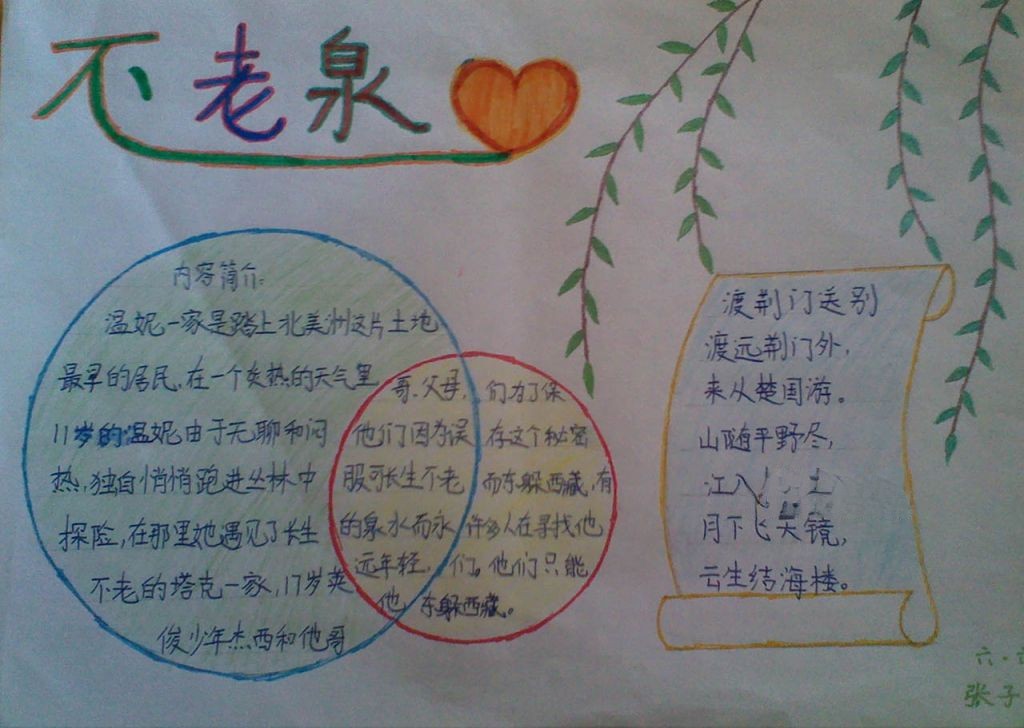 不老泉
内容简介:
温妮一家是踏上北美洲这片土地
最早的居民,在一个炎热的天气里
11岁的温妮由于无聊和闷
热,独自悄悄跑进丛林中
探险,在那里她遇见了长生
不老的塔克一家,17岁英
俊少年杰西和他哥
哥、父母,
他们因为误
服可长生不老
的泉水而永
远年轻,
他
们为了保
存这个秘密
而东躲西藏,有
许多人在寻找他
们。他们只能
东躲西藏。
渡荆门送别
渡远荆门外,
来从楚国游。
山随平野尽,
江入
月下飞天镜,
云生结海楼。
六·
张子